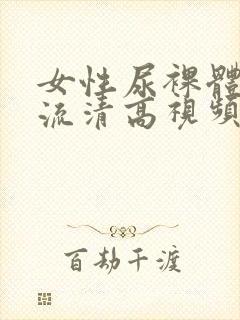 女性尿裸體
流清高視頻
百劫千渡